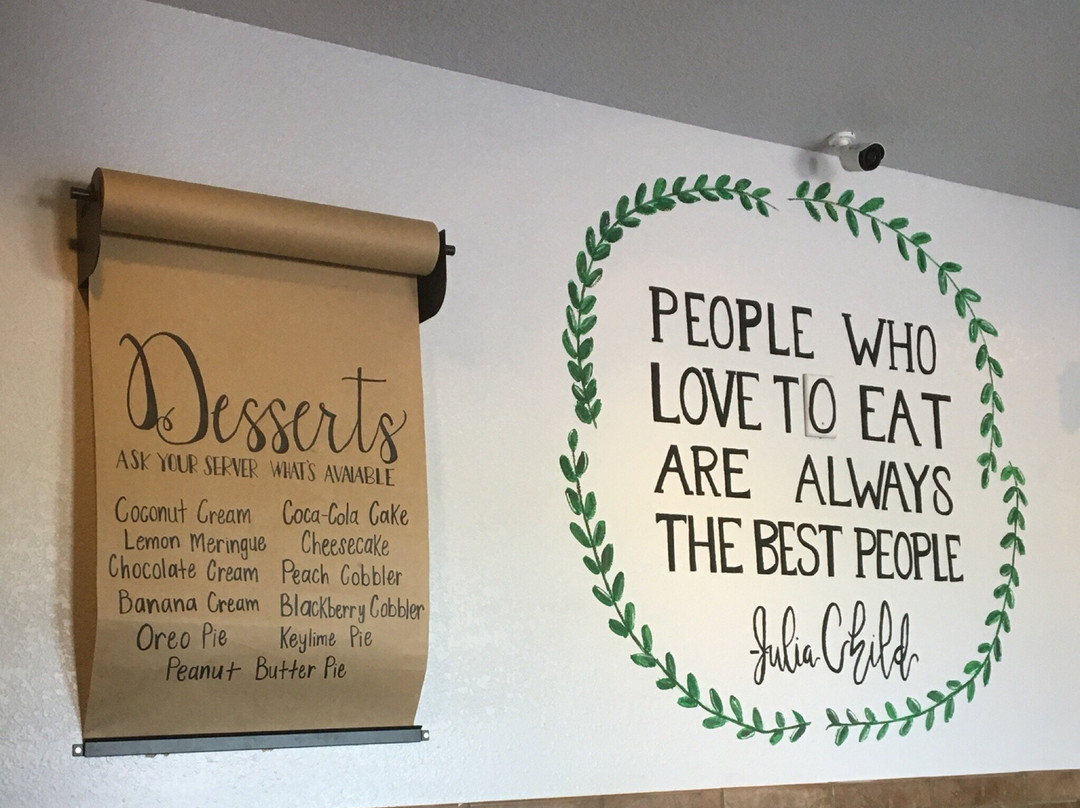 Desserts
ASK YOUR SERVER WHAT'S AVAIABLE
Coconut Cream
Lemon Meringue
Chocolate Cream
Banana Cream
Oreo Pie
Coca-Cola Cake
Cheesecake
Peach Cobbler
Blackberry Cobbler
Keylime Pie
Peanut Butter Pie
PEOPLE WHO
LOVE TO EAT
ARE ALWAYS
THE BEST PEOPLE
-Julia Child